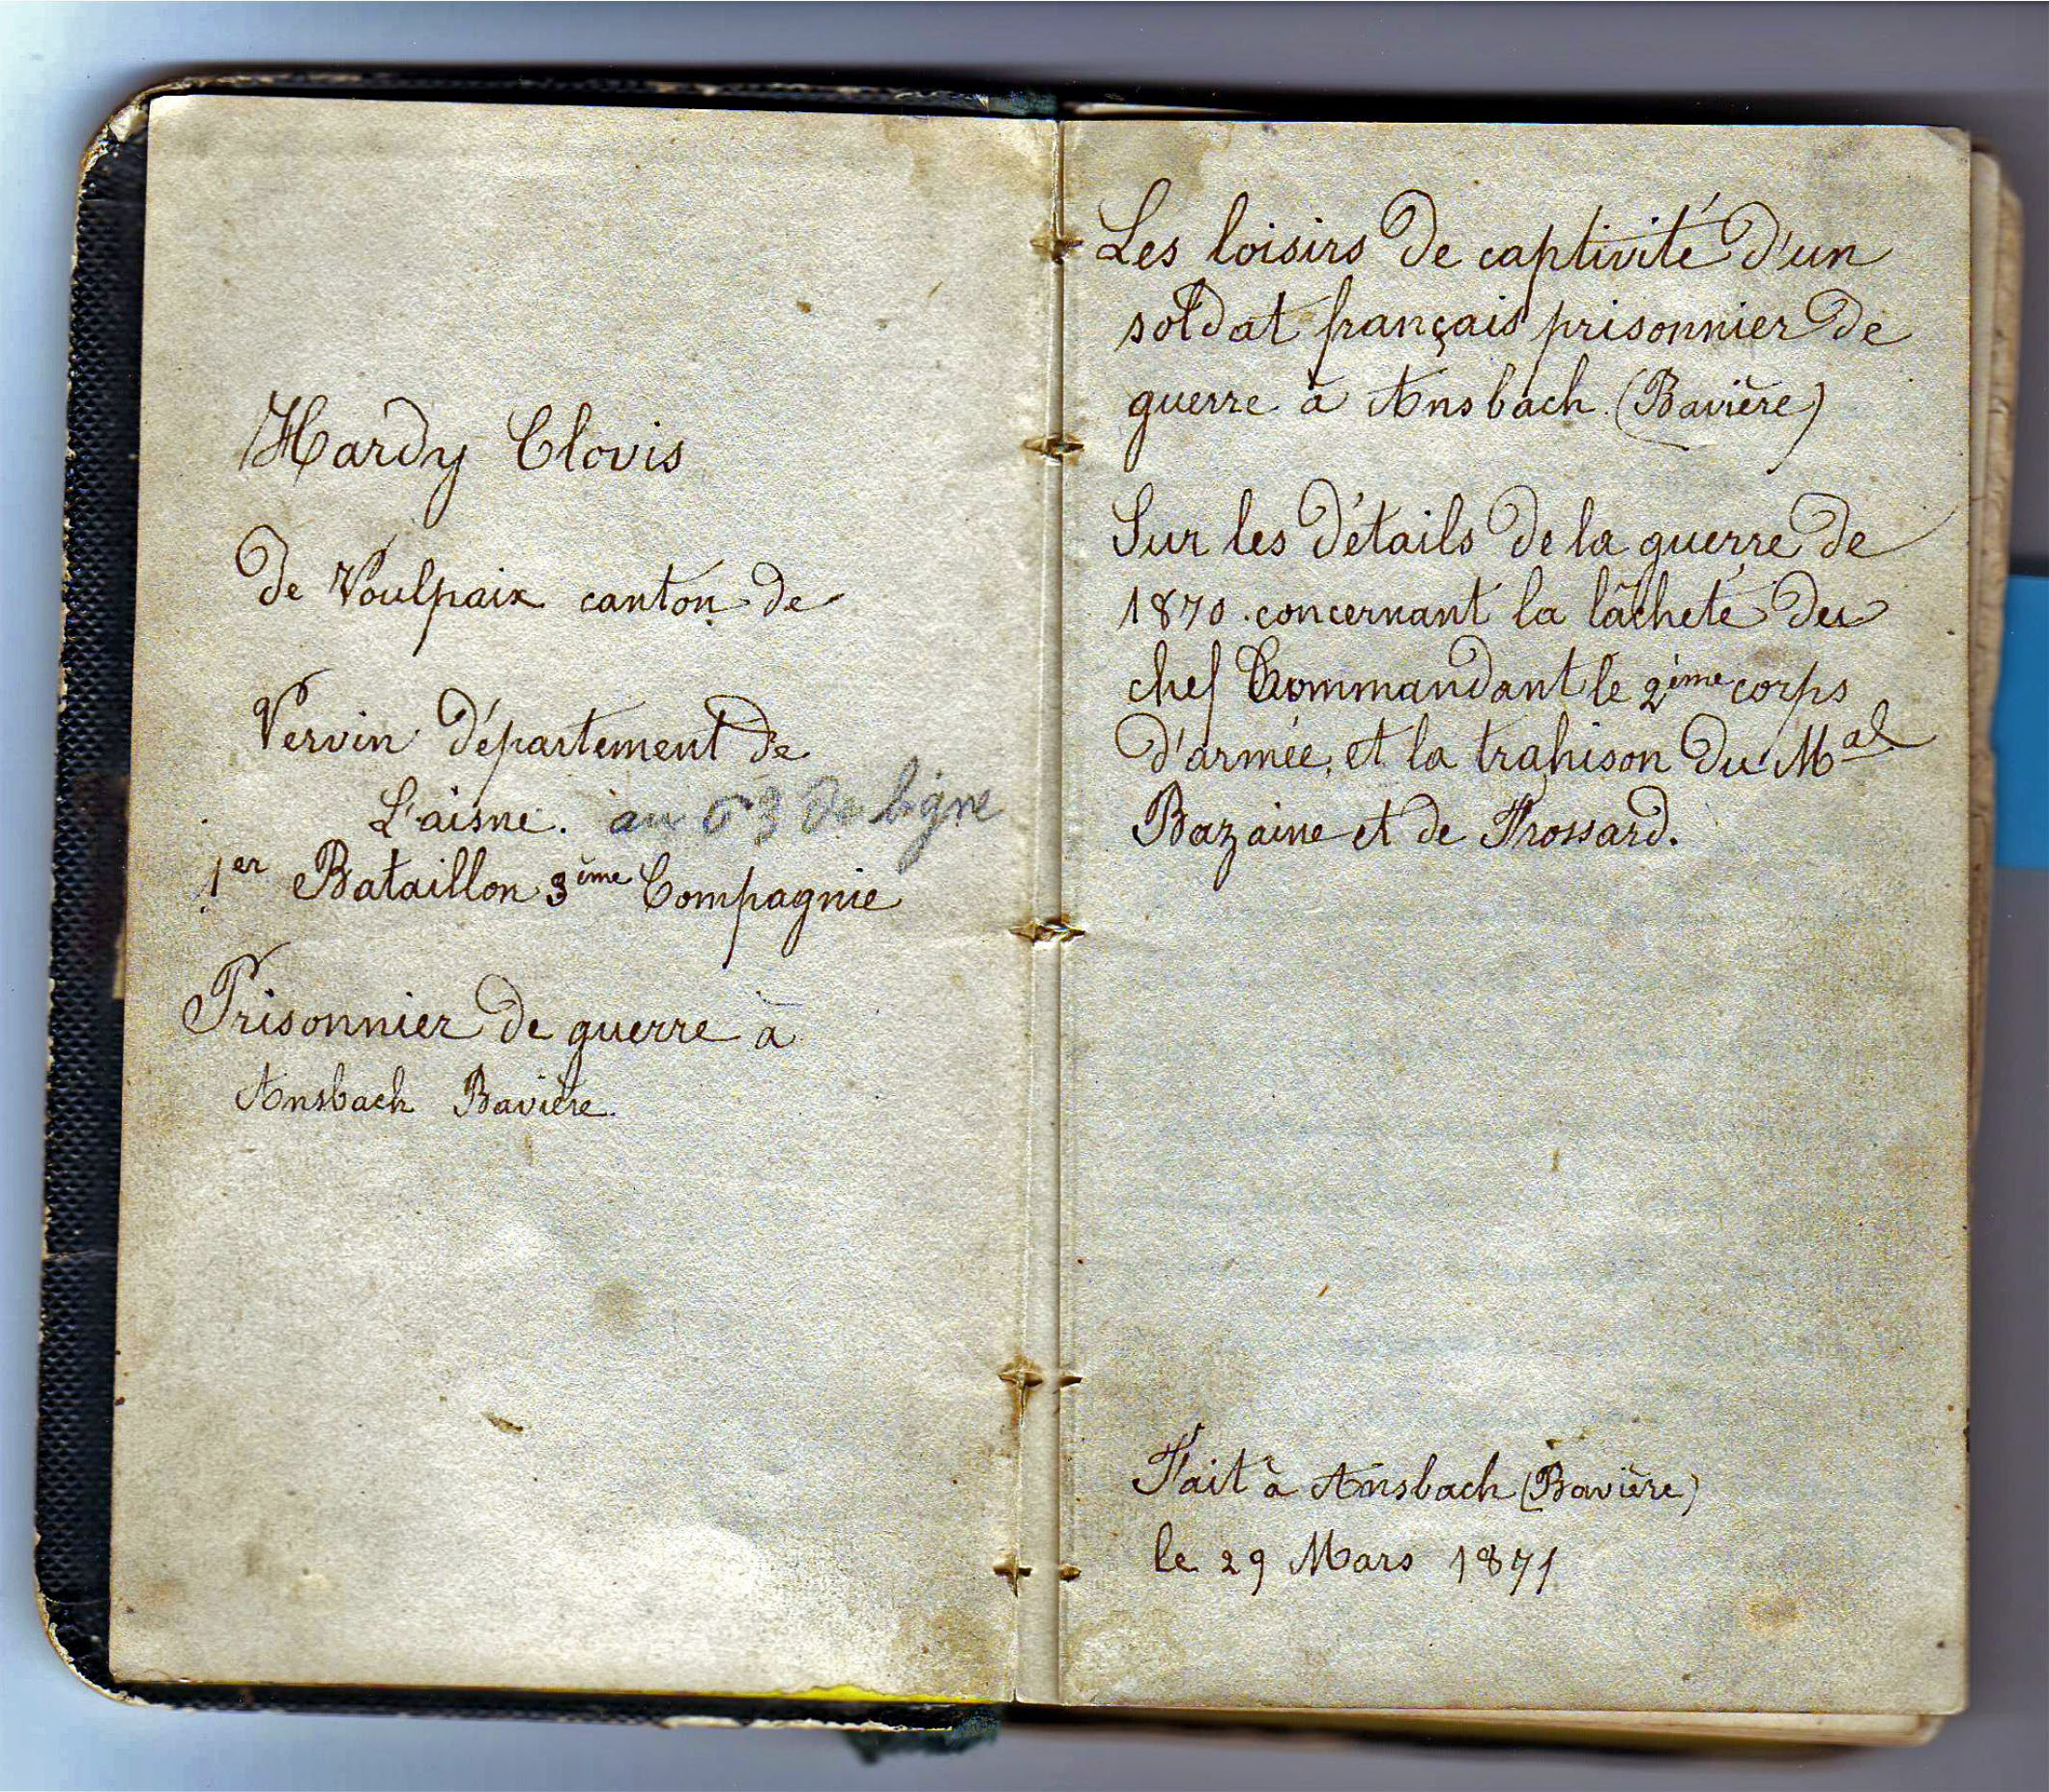 Hardy Clovis
de Voulpaix canton de
Vervin département de
L'aisne. au 63 de ligne
1er Bataillon 3ème Compagnie
Prisonnier de guerre à
Ansbach Bavière.
Les loisirs de captivité d'un
soldat français prisonnier de
guerre à Ansbach (Bavière)
Sur les détails de la guerre de
1870. concernant la lâcheté du
chef Commandant le 2ème corps
d'armée, et la trahison du Mal
Bazaine et de Frossard.
Fait à Ansbach (Bavière)
le 29 Mars 1871